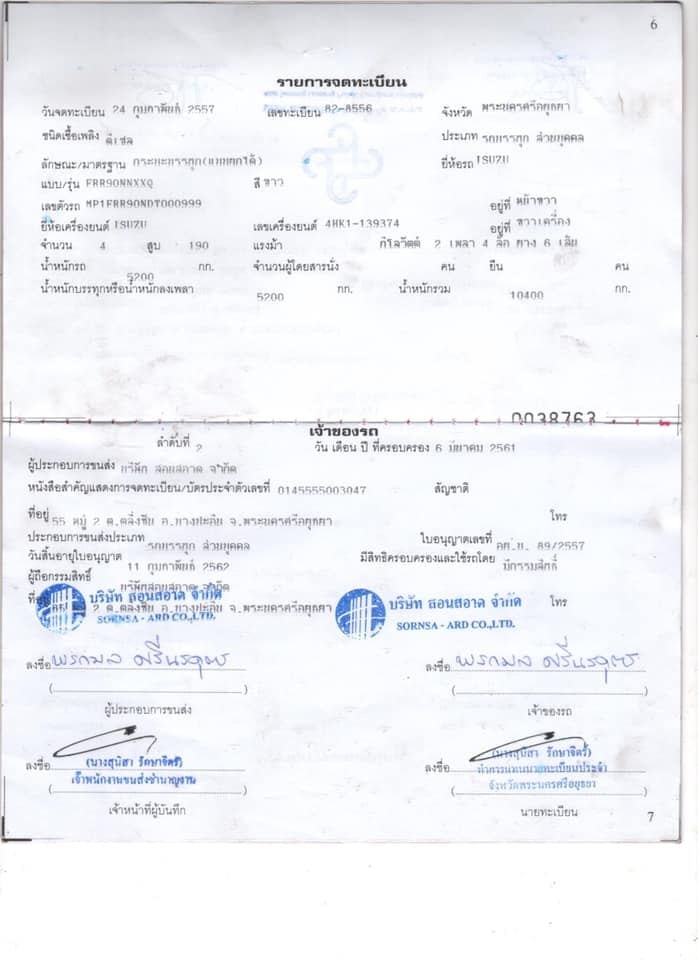 6
รายการจดทะเบียน
วันจดทะเบียน 24 กุมภาพันธ์ 2557 เลขทะเบียน 82-8556 จังหวัด พระนครศรีอยุธยา
ชนิดเชื้อเพลิง ดีเซล ประเภท รถบรรทุก ส่วนบุคคล
ลักษณะ/มาตรฐาน กระบะบรรทุก(แบบยกได้) ยี่ห้อรถ ISUZU
แบบ/รุ่น FRR90NNXXQ สี ขาว
เลขตัวรถ MP1FRR90NDT000999 อยู่ที่ หน้าขวา
ยี่ห้อเครื่องยนต์ ISUZU เลขเครื่องยนต์ 4HK1-139374 อยู่ที่ ขวาเครื่อง
จำนวน 4 สูบ 190 แรงม้า กิโลวัตต์ 2 เพลา 4 ล้อ ยาง 6 เส้น
น้ำหนักรถ 5200 กก. จำนวนผู้โดยสารนั่ง คน ยืน คน
น้ำหนักบรรทุกหรือน้ำหนักลงเพลา 5200 กก. น้ำหนักรวม 10400 กก.
0038763
เจ้าของรถ
ลำดับที่ 2 วัน เดือน ปี ที่ครอบครอง 6 มีนาคม 2561
ผู้ประกอบการขนส่ง บริษัท สอนสอาด จำกัด
หนังสือสำคัญแสดงการจดทะเบียน/บัตรประจำตัวเลขที่ 0145555003047 สัญชาติ
ที่อยู่ 55 หมู่ 2 ต.ตลิ่งชัน อ.บางปะอิน จ.พระนครศรีอยุธยา โทร
ประกอบการขนส่งประเภท รถบรรทุก ส่วนบุคคล ใบอนุญาตเลขที่ อย.บ. 89/2557
วันสิ้นอายุใบอนุญาต 11 กุมภาพันธ์ 2562 มีสิทธิครอบครองและใช้รถโดย มีกรรมสิทธิ์
ผู้ถือกรรมสิทธิ์ บริษัทสอนสอาด จำกัด
ที่อยู่ 55 หมู่ 2 ต.ตลิ่งชัน อ.บางปะอิน จ.พระนครศรีอยุธยา โทร
บริษัท สอนสอาด จำกัด บริษัท สอนสอาด จำกัด
SORNSA - ARD CO.,LTD. SORNSA - ARD CO.,LTD.
ลงชื่อ ลงชื่อ
( ) ( )
ผู้ประกอบการขนส่ง เจ้าของรถ
ลงชื่อ (นางสุนิสา รักษาจิตร์) ลงชื่อ (นางสุนิสา รักษาจิตร์)
เจ้าพนักงานขนส่งชำนาญงาน ทำการแทนนายทะเบียนประจำ
( ) ( จังหวัดพระนครศรีอยุธยา )
เจ้าหน้าที่ผู้บันทึก นายทะเบียน
7